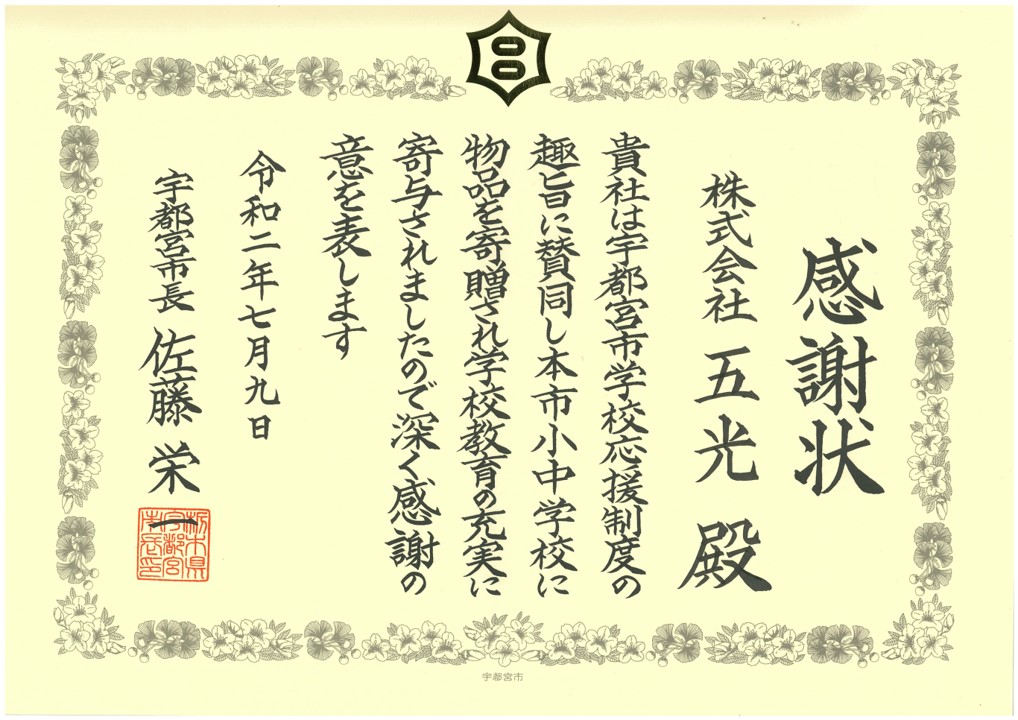 感謝状
株式会社 五光 殿
貴社は宇都宮市学校応援制度の
趣旨に賛同し本市小中学校に
物品を寄贈され学校教育の充実に
寄与されましたので深く感謝の
意を表します
令和二年七月九日
宇都宮市長 佐藤 栄一
栃木県
宇都宮
市長印
宇都宮市